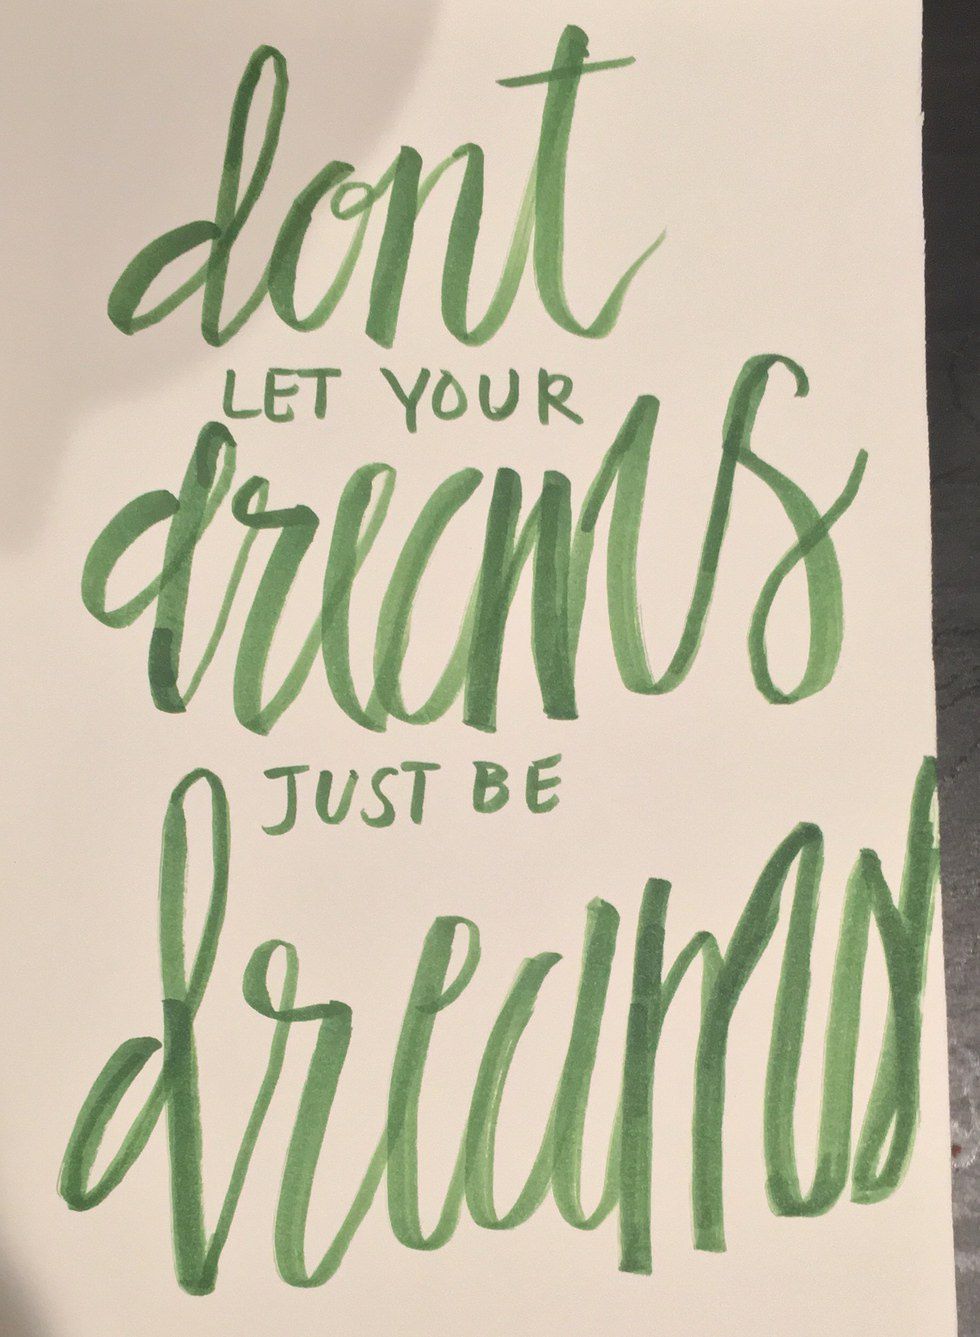 dont
LET YOUR
dreams
JUST BE
dreams